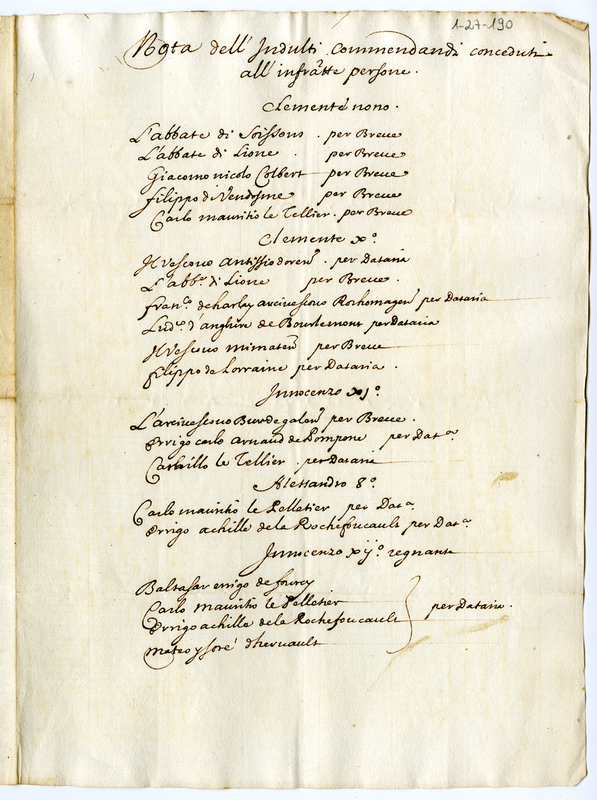 1-27-190
Nota dell' Indulti commendandi conceduti
all' infratte persone.
Clemente nono.
L'abbate di Soissons. per Breve
L'abbate di Lione. per Breve
Giacomo nicolo Colbert per Breve
filippo di Vendosme per Breve
Carlo mauritio le Tellier. per Breve
Clemente xº.
Il Vescovo Antissiodoren. per Dataria
L'abbe. di Lione per Breve.
franco. de harlay arcivescovo Rothomagen per Dataria
Ludco. d'anghien de Bourlemont per Dataria
Il Vescovo mimaten per Breve
filippo de Lorraine per Dataria.
Innocenzo xjº.
L'arcivescovo Burdegalen per Breve.
Errigo carlo Arnaud de Pompone per Data.
Camillo le Tellier. per Dataria
Alessandro 8º.
Carlo mauritio le Pelletier per Data.
Errigo achille de la Rochefoucault per Data.
Innocenzo xijº. regnante
Baltasar errigo de fourcy
Carlo mauritio le Pelletier
Errigo achille de la Rochefoucault per Dataria.
mateo ysoré d'hervault